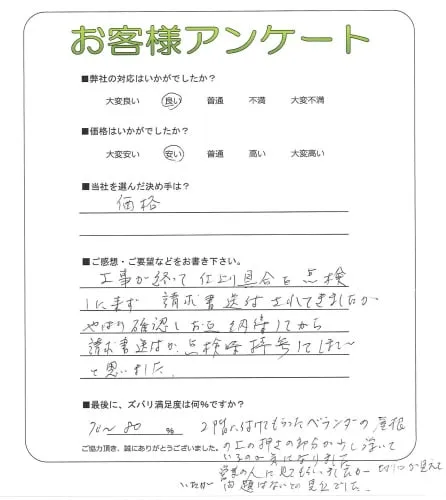 お客様アンケート
■弊社の対応はいかがでしたか?
大変良い 良い 普通 不満 大変不満
■価格はいかがでしたか?
大変安い 安い 普通 高い 大変高い
■当社を選んだ決め手は?
価格
■ご感想・ご要望などをお書き下さい。
工事が終って 仕上り具合を点検
に来ず 請求書送付されてきましたが
やはり確認しお互納得してから
請求書送付か、点検時持参してほしい
と思いました。
■最後に、ズバリ満足度は何%ですか?
70〜80 %
2階に付けてもらったベランダーの屋根
ご協力頂き、誠にありがとうございました。
の上の押さの部分が少し浮いて
いるのが気になりました
営業の人に見てもらいましたが
問題はないとの見立でした。